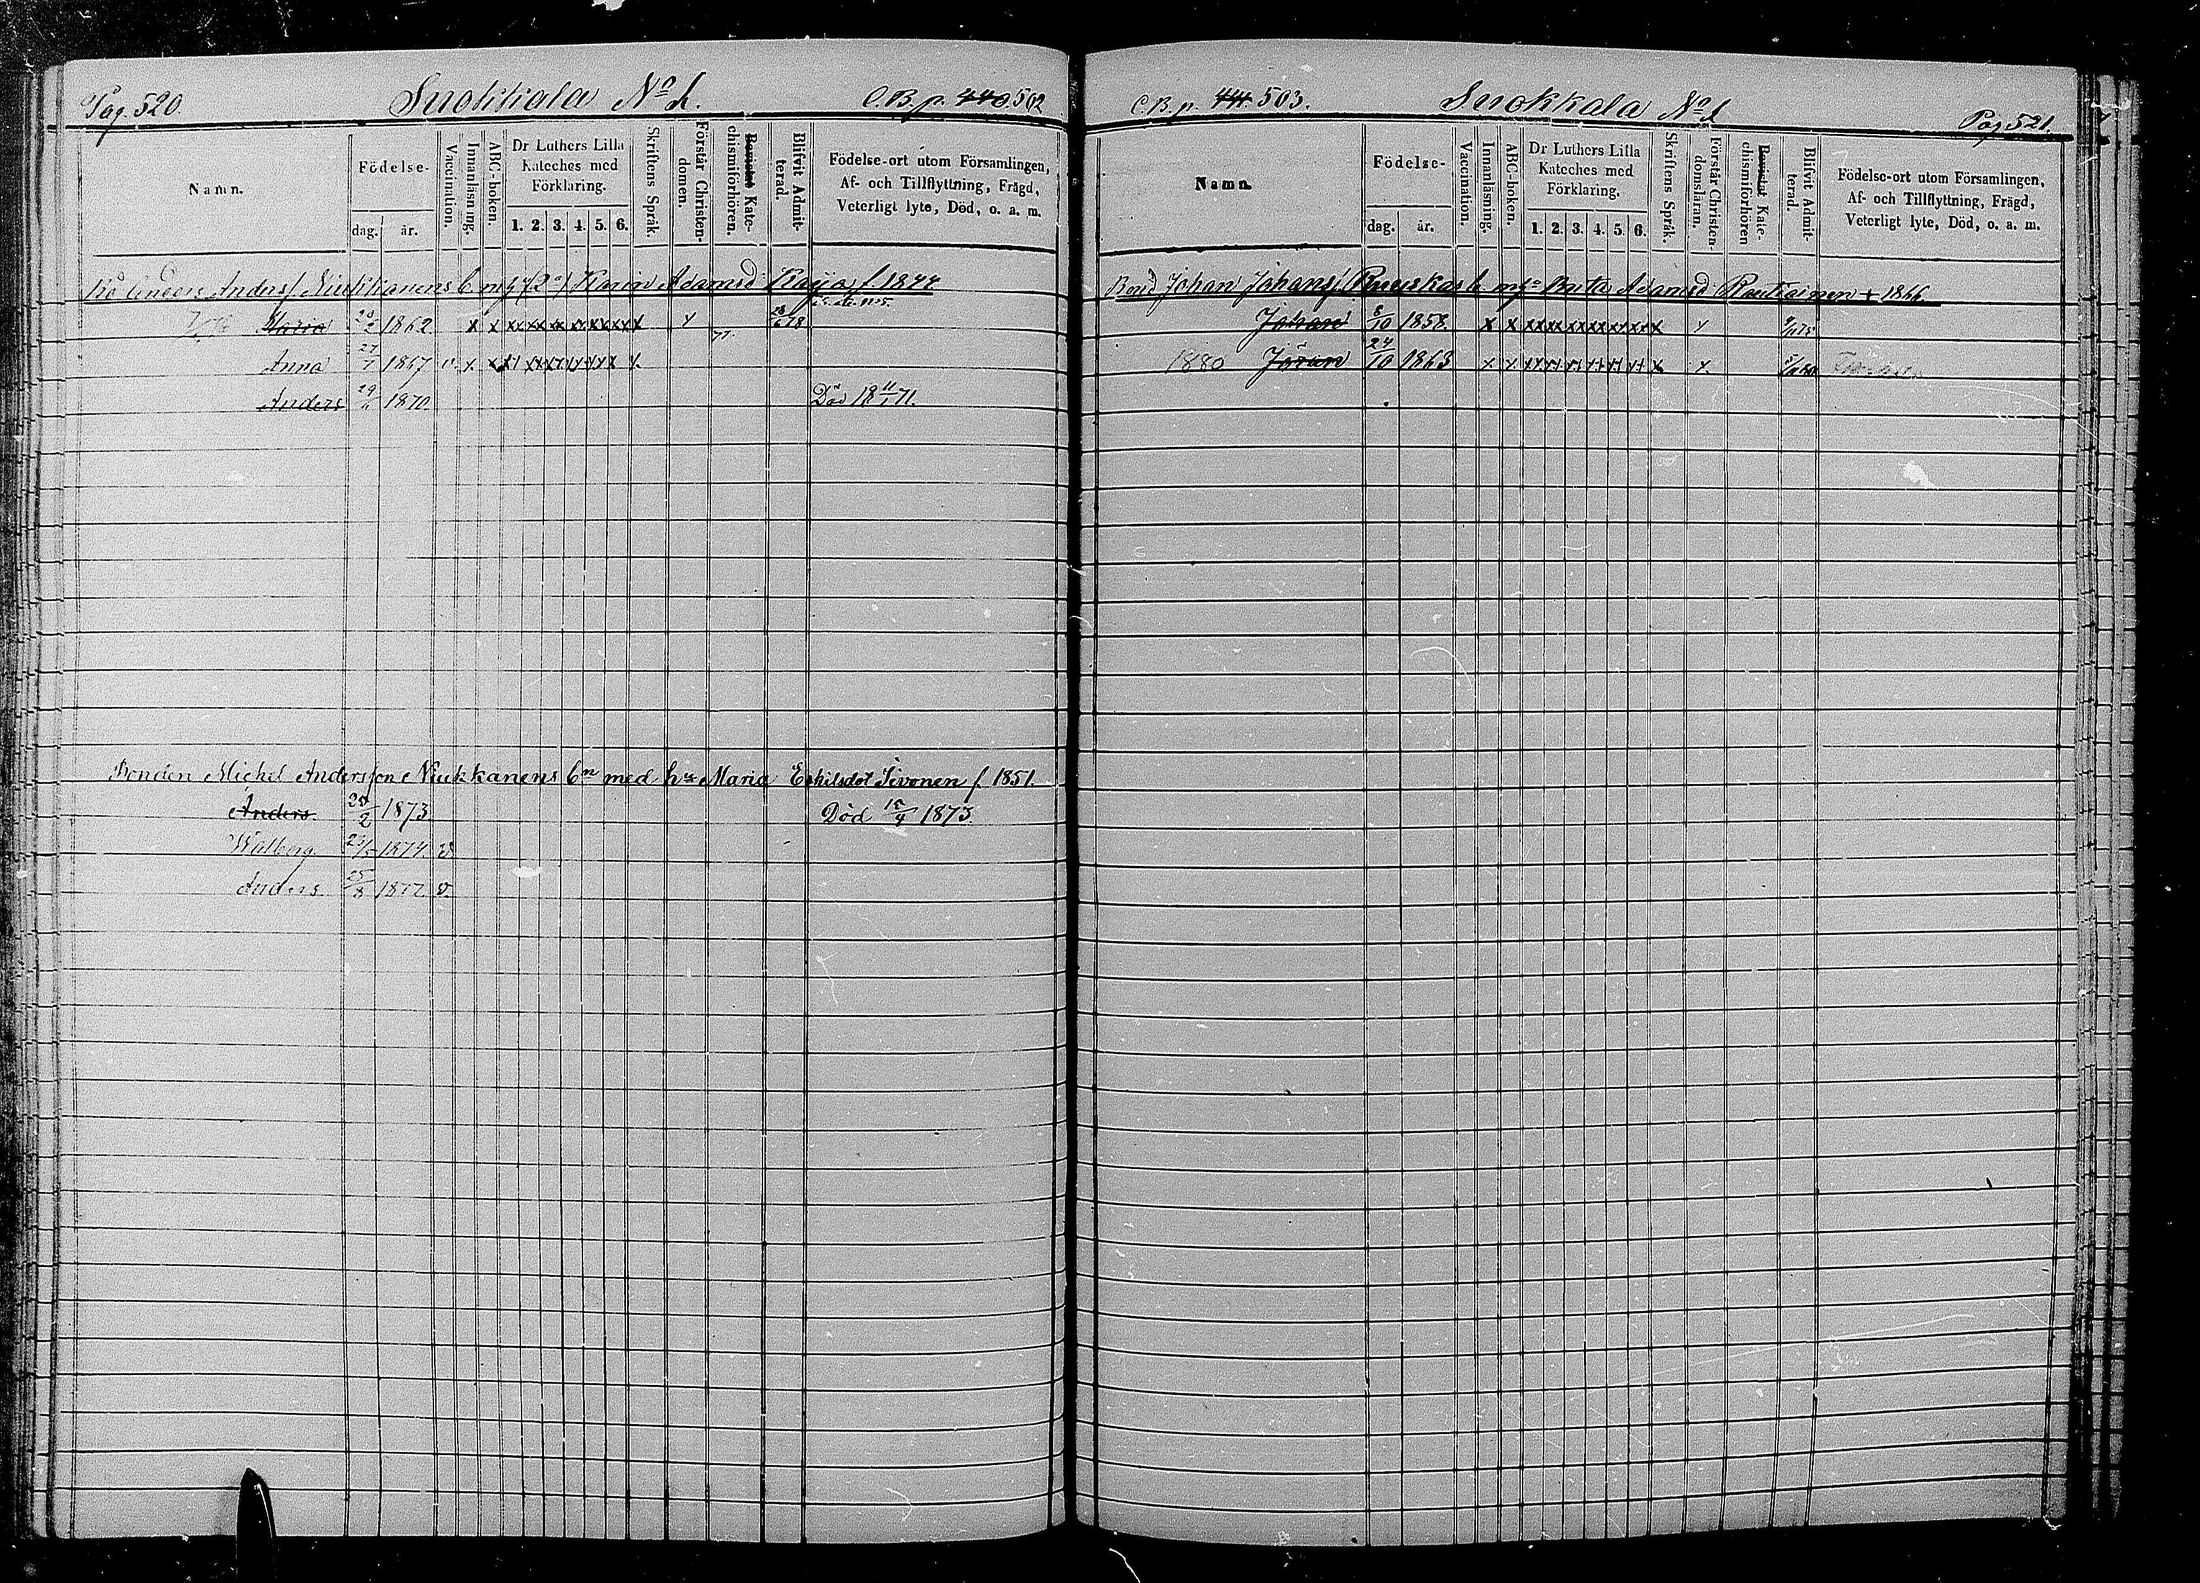 Pag. 520. Suokkala No 1. C.B. p. 440 502
Namn. Födelse- dag. år. Vaccination. Innanläsning. ABC-boken. Dr Luthers Lilla Kateches med Förklaring. 1. 2. 3. 4. 5. 6. Skriftens Språk. Förstår Christendomen. Bevistat Katechismiförhören. Blifvit Admitterad. Födelse-ort utom Församlingen, Af- och Tillflyttning, Frägd, Veterligt lyte, Död, o. a. m.
Anders Niukkanens Karin Adamsd Raija f. 1844
Maria 1862 x x xx xx xx xx xx xx x
Anna 27/1 1867 v. x x
Anders 29/ 1870. Död 18 71.
Bonden Mickel Andersson Niukkanens bn med h:u Maria Eskilsdot Sivonen f. 1851.
Anders 25/2 1873 Död 15/4 1873.
Walborg 1874. v
Anders 25/8 1877 v
C.B. p. 441 503. Suokkala No 1 Pag 521.
Namn. Födelse- dag. år. Vaccination. Innanläsning. ABC-boken. Dr Luthers Lilla Kateches med Förklaring. 1. 2. 3. 4. 5. 6. Skriftens Språk. Förstår Christendomsläran. Bevistat Katechismiförhören Blifvit Admitterad. Födelse-ort utom Församlingen, Af- och Tillflyttning, Frägd, Veterligt lyte, Död, o. a. m.
Bond Johan Johans Adamsd Rautiainen + 1866
Johan 8/10 1858. x x xx xx xx xx xx xx x
1880 Jöran 24/10 1863 x x